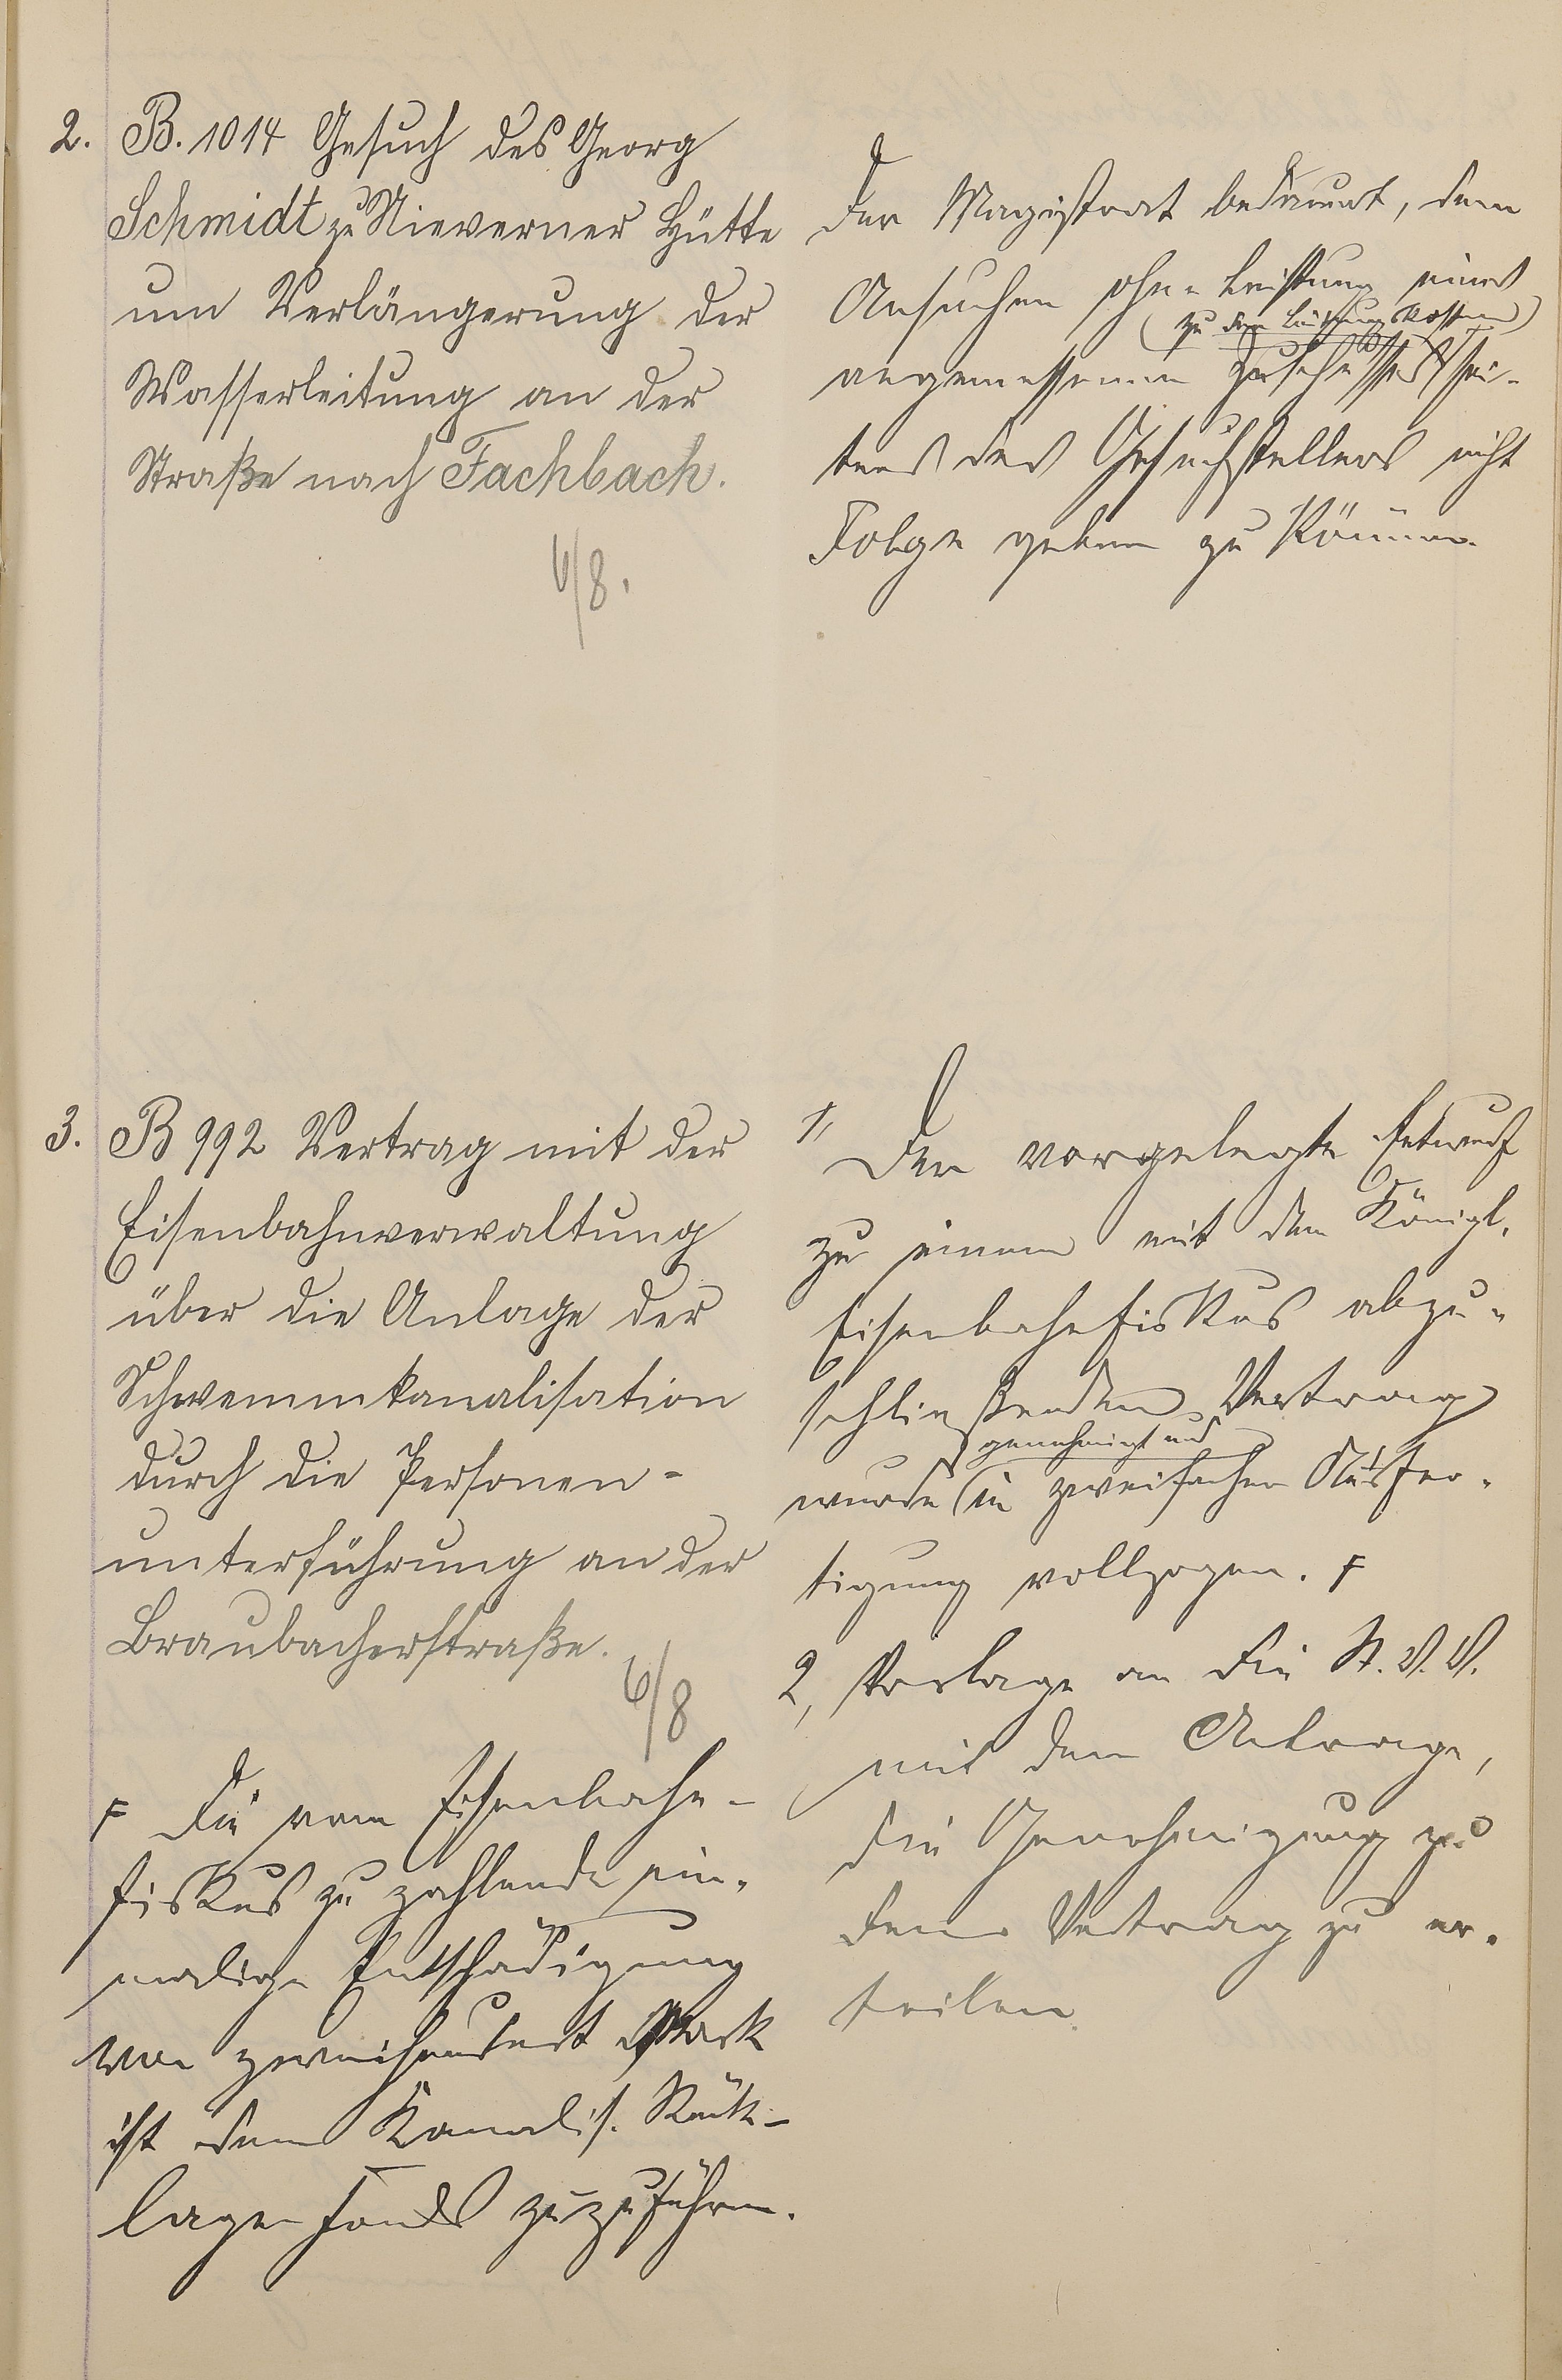 2. B. 1014 Gesuch des Georg
Schmidt zu Nieverner Hütte
um Verlängerung der
Wasserleitung an der
Straße nach Fachbach.
6/8.
Der Magistrat bedauert, dem
Ansuchen ohne Leistung eines
(zu den Leitungskosten)
angemessenen Zuschusses sei-
tens des Gesuchstellers nicht
Folge geben zu können.
3. B 992 Vertrag mit der
Eisenbahnverwaltung
über die Anlage der
Schwemmkanalisation
durch die Personen-
unterführung an der
Braubacherstraße.
6/8
F Die vom Eisenbahn-
fiskus zu zahlende ein-
malige Entschädigung
von zweihundert Mark
ist dem Kanalis. Rück-
lagenfonds zuzuführen.
1, Der vorgelegte Entwurf
zu einem mit dem Königl.
Eisenbahnfiskus abzu-
schließenden Vertrag
genehmigt und
wurde in zweifacher Ausfer-
tigung vollzogen. F
2, Vorlage an die St. V. V.
mit dem Antrage,
die Genehmigung zu
dem Vertrag zu er-
teilen.